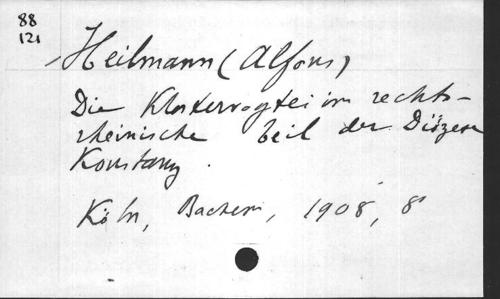 88
121
Heilmann (Alfons)
Die Klostervogtei im rechts-
rheinische Teil der Diözese
Konstanz.
Köln, Bachem, 1908, 8°